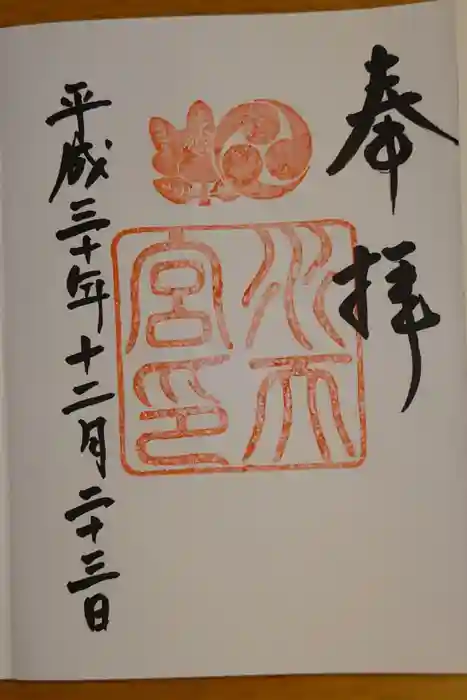 奉拝
水天宮印
平成三十年十二月二十三日